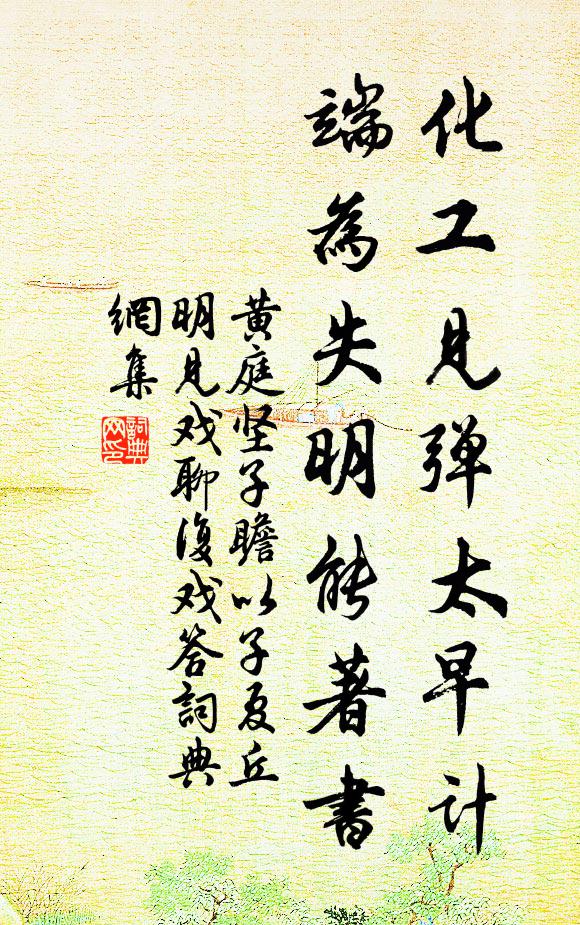 化工见弹太早计
端為失明能著書
黄庭坚子瞻以子夏丘
明见戏聊復戏答詞典
網集
詞典
网印